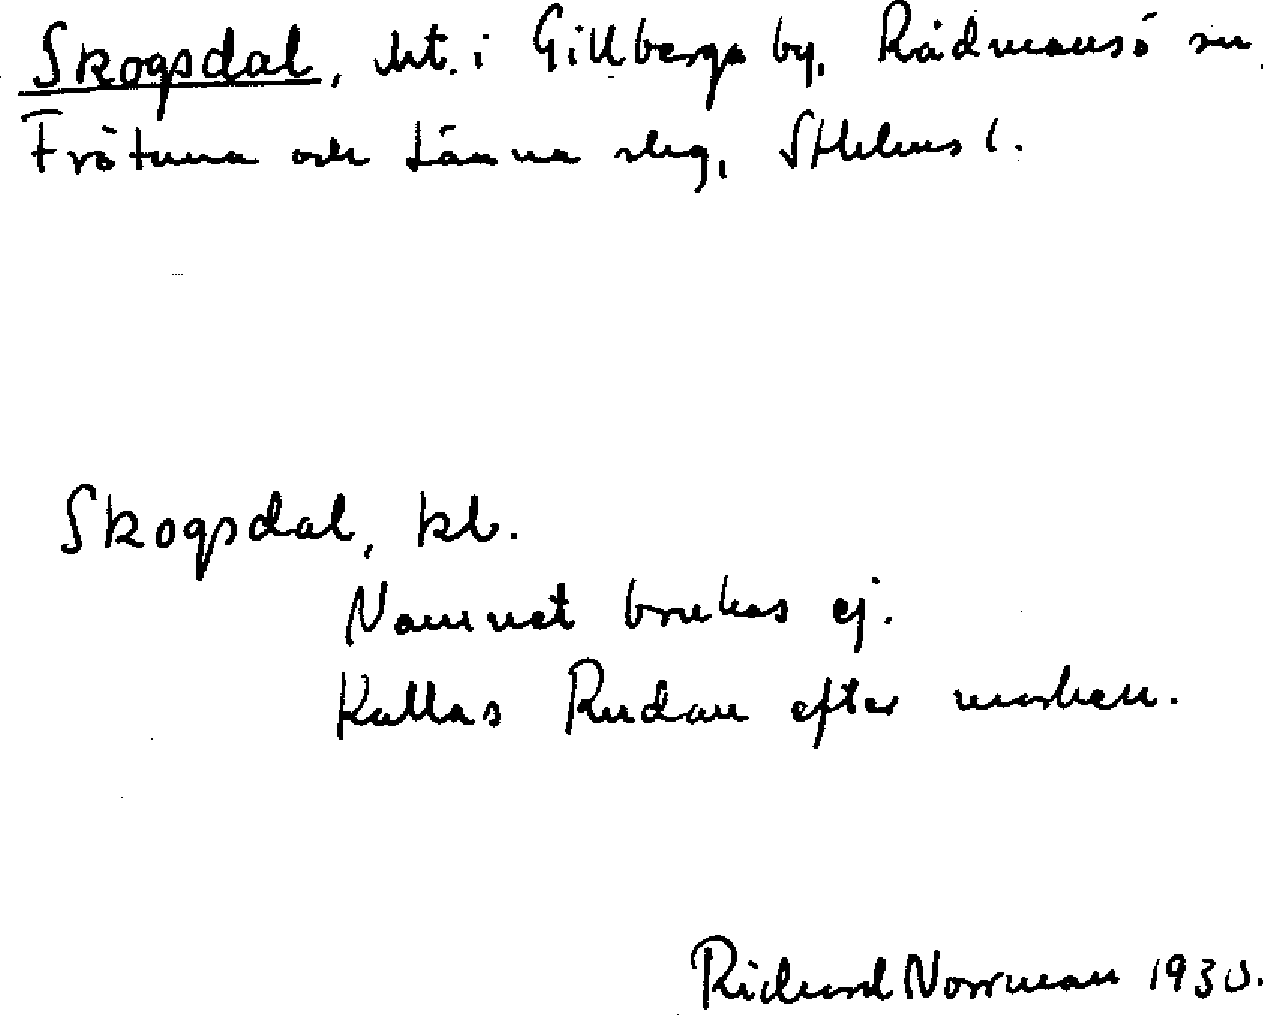 Skogsdal, lht. i Gillberga by, Rådmansö sn,
Frötuna och Länna slg, Sthlms l.
Skogsdal, kl.
Namnet brukas ej.
Kallas Rudan efter marken.
Richard Norrman 1930.